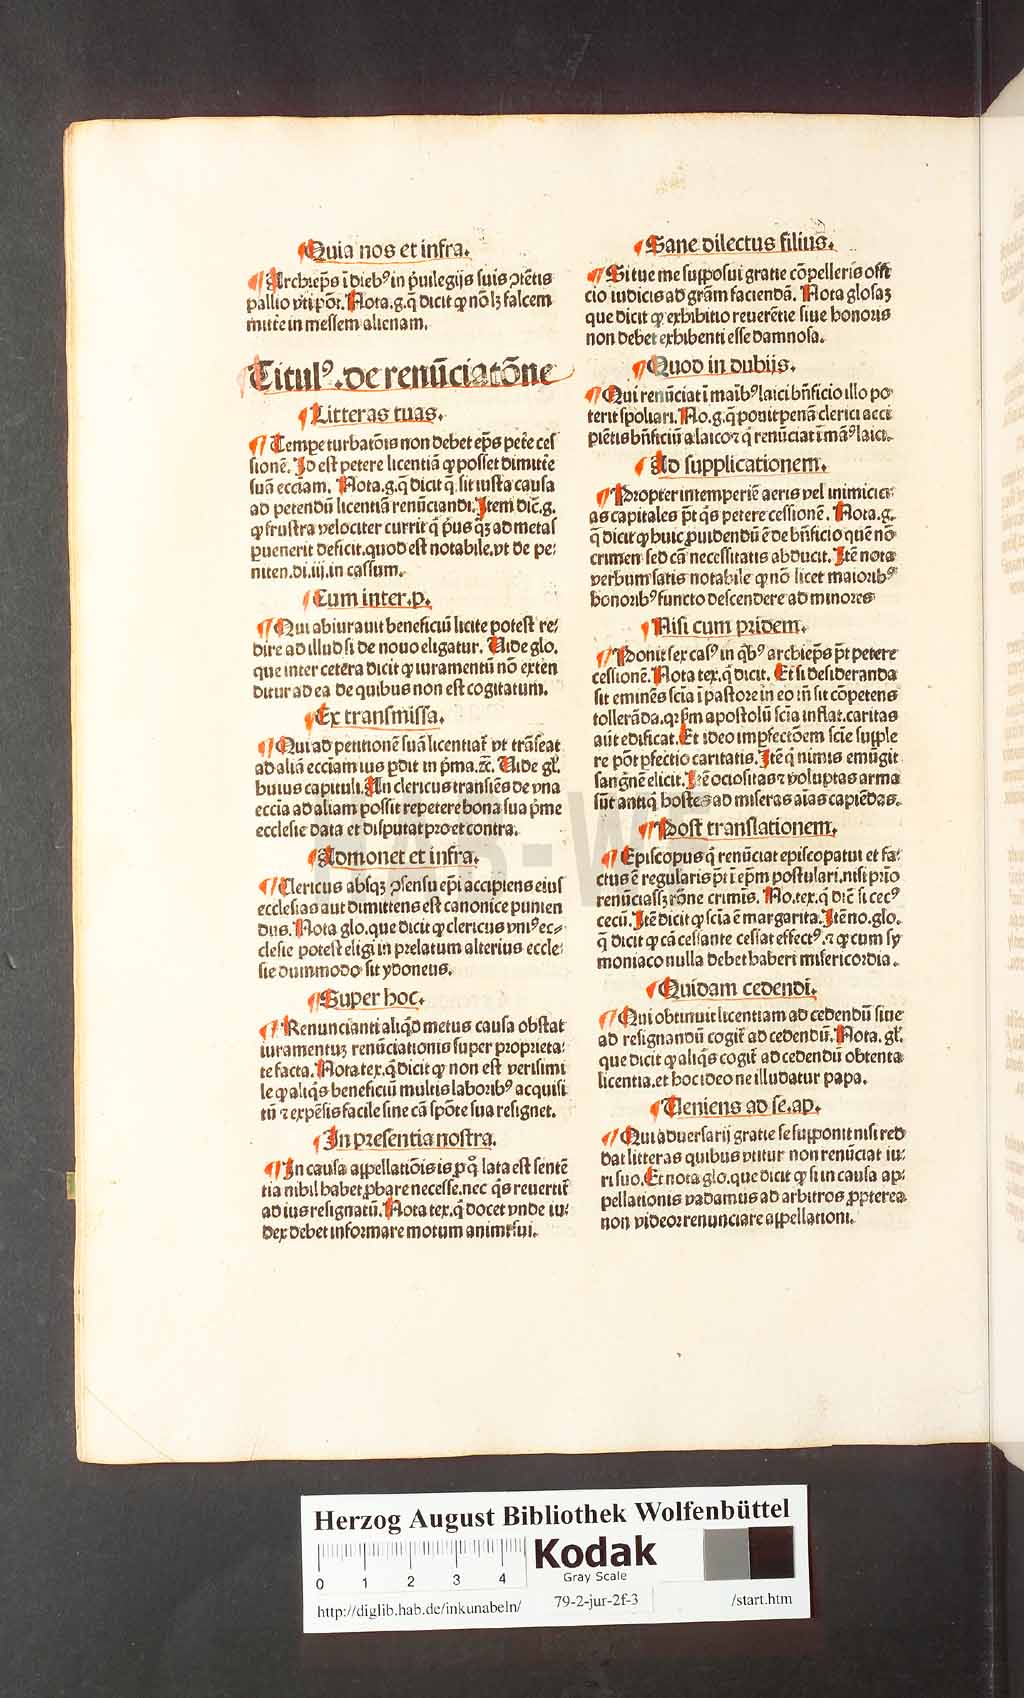 ¶Quia nos et infra.
¶Archiep̄s ī dieb⁹ in p̄uilegijs suis ↄtētis
pallio vti pōt. Nota.g.q̄ dicit ꝙ nō lꝫ falcem
mitte̅ in messem alienam.
Titul⁹.de renūciatōne
¶Litteras tuas.
¶Tempe turbatōis non debet ep̄s pete̅ ces
sionē. Id est petere licentiā ꝙ posset dimitte̅
suā ecciam. Nota.g.q̄ dicit q̄ sit iusta causa
ad petendū licentiā renūciandi. Item dic̄.g.
ꝙ frustra velociter currit q̄ p̄us qꝫ ad metas
ꝑuenerit deficit.quod est notabile.vt de pe⸗
niten.di.iij.in cassum.
¶Cum inter.p.
¶Qui abiurauit beneficiū licite potest re⸗
dire ad illud si de nouo eligatur. Uide glo.
que inter cetera dicit ꝙ iuramentū nō exten
ditur ad ea de quibus non est cogitatum.
¶Ex transmissa.
¶Qui ad petitionē suā licentiat̄ vt trāseat
ad aliā ecciam ius ꝑdit in p̄ma.⁊c̄. Uide gl̄.
huius capituli. An clericus transiēs de vna
eccia ad aliam possit repetere bona sua p̄me
ecclesie data et disputat pro et contra.
¶Admonet et infra.
¶Clericus absqꝫ ↄsensu ep̄i accipiens eius
ecclesias aut dimittens est canonice punien
dus. Nota glo.que dicit ꝙ clericus vni⁹ ec⸗
clesie potest eligi in prelatum alterius eccle⸗
sie dummodo sit ydoneus.
¶Super hoc.
¶Renuncianti aliq̄d metus causa obstat
iuramentuꝫ renūciationis super proprieta⸗
te facta. Nota tex.q̄ dicit ꝙ non est verisimi
le ꝙ aliq̄s beneficiū multis laborib⁹ acquisi
tū ⁊ expēsis facile sine cā spōte sua resignet.
¶In presentia nostra.
¶In causa appellatiōis is ꝓ q̊ lata est sentē
tia nihil habet ꝓbare necesse.nec q̄s reuertit̄
ad ius resignatū. Nota tex.q̄ docet vnde iu⸗
dex debet informare motum animi sui.
¶Sane dilectus filius.
¶Si tue me supposui gratie cōpelleris offi
cio iudicis ad grām faciendā. Nota glosaꝫ
que dicit ꝙ exhibitio reuerētie siue honoris
non debet exhibenti esse damnosa.
¶Quod in dubijs.
¶Qui renūciat ī maib̄⁹ laici bn̄ficio illo po
terit spoliari. No.g.q̄ ponit penā clerici acci
piētis bn̄ficiū a laico ⁊ q̄ renūciat ī mā⁹ laici.
¶Ad supplicationem.
¶Propter intemperiē aeris vel inimicici⸗
as capitales p̄t q̄s petere cessionē. Nota.g.
q̄ dicit ꝙ huic ꝓuidendū ē de bn̄ficio quē nō
crimen sed cā necessitatis abducit. Itē nota
verbum satis notabile ꝙ nō licet maiorib⁹
honorib⁹ functo descendere ad minores
¶Nisi cum pridem.
¶Ponit sex cas⁹ in q̄b⁹ archiep̄s p̄t petere
cessionē. Nota tex.q̄ dicit. Et si desideranda
sit eminēs scīa ī pastore in eo tn̄ sit cōpetens
tollerāda.qꝛ ẜm apostolū scīa inflat.caritas
aūt edificat. Et ideo imꝑfectōem scīe supple
re pōt ꝑfectio caritatis. Itē q̄ nimis emūgit
sangnē elicit. Itē ociositas ⁊ voluptas arma
sūt antiq̄ hostis ad miseras aīas capiēdas.
¶Post translationem.
¶Episcopus q̄ renūciat episcopatui et fa⸗
ctus ē regularis p̄t ī ep̄m postulari.nisi p̄tio
renūciassꝫ rōne crimīs. No.tex.q̄ dic̄ si cec⁹
cecū. Itē dicit ꝙ scīa ē margarita. Itē no.glo.
q̄ dicit ꝙ cā cessante cessat effect⁹.⁊ ꝙ cum sy
moniaco nulla debet haberi misericordia.
¶Quidam cedendi.
¶Qui obtinuit licentiam ad cedendū siue
ad resignandū cogit̄ ad cedendū. Nota.gl̄.
que dicit ꝙ aliq̄s cogit̄ ad cedendū obtenta
licentia.et hoc ideo ne illudatur papa.
¶Ueniens ad se.ap.
¶Qui aduersarij gratie se supponit nisi red
dat litteras quibus vtitur non renūciat iu⸗
ri suo. Et nota glo.que dicit ꝙ si in causa ap⸗
pellationis vadamus ad arbitros ꝓpterea
non videor renunciare appellationi.
Herzog August Bibliothek Wolfenbüttel
0 1 2 3 4
Kodak
Gray Scale
http://diglib.hab.de/inkunabeln/ 79-2-jur-2f-3 /start.htm
HAB-WF